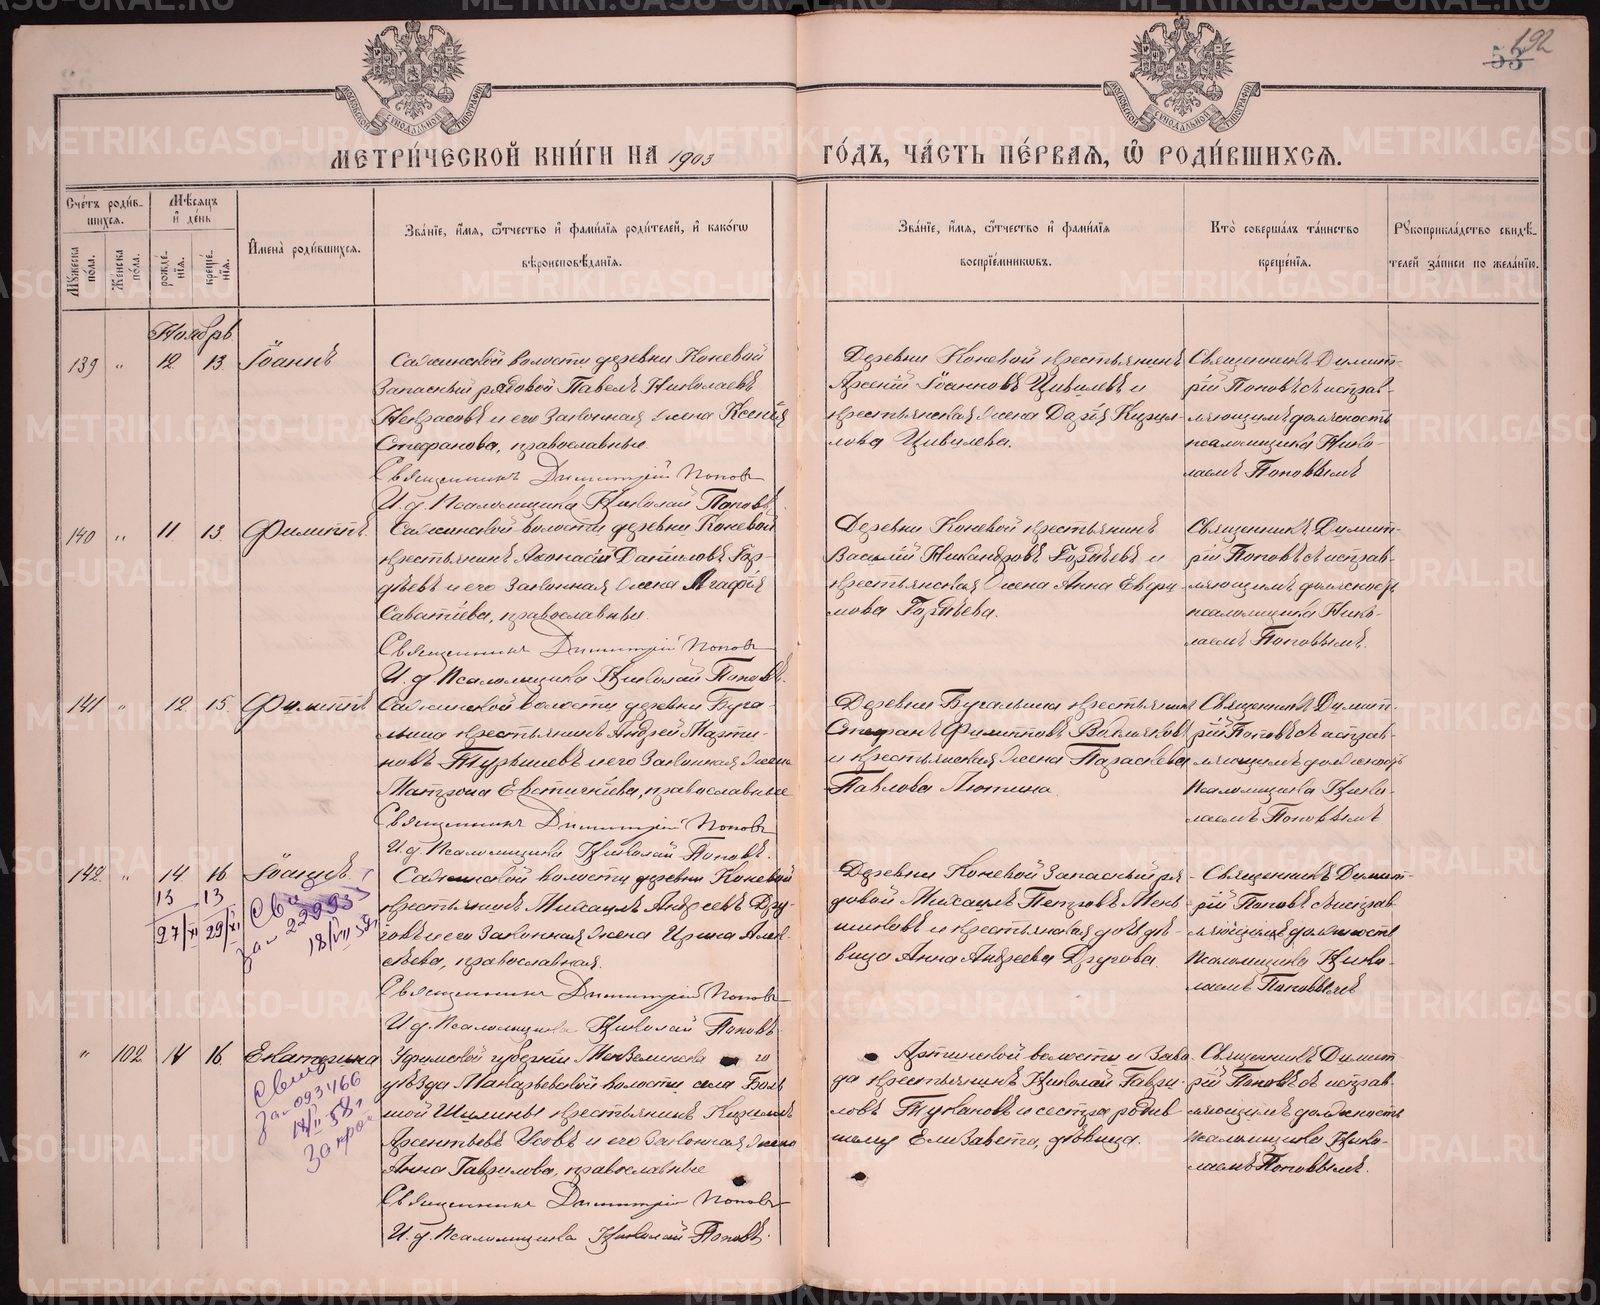 192
53
МОСКОВСКОЙ СѴНОДАЛЬНОЙ ТИПОГРАФІИ
МОСКОВСКОЙ СѴНОДАЛЬНОЙ ТИПОГРАФІИ
МЕТРИ́ЧЕСКОЙ КНИ́ГИ НА 1903 ГО́ДЪ, ЧА́СТЬ ПЕ́РВАЯ, Ѡ҆ РОДИ́ВШИХСЯ.
Сче́тъ роди́в-
шихся.
Мѣ́сяцъ
и҆ де́нь
Мꙋ́жеска по́ла.
Же́нска по́ла.
рожде́нія.
креще́нія.
И҆мена̀ роди́вшихся.
Зва́ніе, и҆́мя, ѻ҆́тчество и҆ фами́лія роди́телей, и҆ како́гѡ
вѣроисповѣ́данія.
Зва́ніе, и҆́мя, ѻ҆́тчество и҆ фами́лія
воспріе́мникѡвъ.
Кто̀ соверша́лъ та́инство
креще́нія.
Рꙋкоприкла́дство свидѣ́-
телей за́писи по жела́нію.
Ноябрь
139 " 12 13 Іоаннъ
Сажинской волости деревни Коневой
Запасный рядовой Павелъ Николаевъ
Некрасовъ и его законная жена Ксенія
Стефанова, православные.
Священникъ Димитрій Поповъ
И. д. Псаломщика Николай Поповъ
Деревни Коневой крестьянинъ
Арсеній Іоанновъ Цивилевъ и
крестьянская жена Дарія Кирил-
лова Цивилева.
Священникъ Димит-
рій Поповъ съ исправ-
ляющимъ должность
псаломщика Нико-
лаемъ Поповымъ
140 " 11 13 Филиппъ
Сажинской волости деревни Коневой
крестьянинъ Афонасій Даниловъ Гор-
дѣевъ и его законная жена Агафія
Саватіева, православные.
Священникъ Димитрій Поповъ
И. д. Псаломщика Николай Поповъ.
Деревни Коневой крестьянинъ
Василій Никандровъ Гордѣевъ и
крестьянская жена Анна Евфи-
мова Гордѣева.
Священникъ Димит-
рій Поповъ съ исправ-
ляющимъ должность
псаломщика Нико-
лаемъ Поповымъ.
141 " 12 15 Филиппъ
Сажинской волости деревни Буга-
лыша крестьянинъ Андрей Марти-
новъ Турышевъ и его законная жена
Матрона Евстигнѣева, православные
Священникъ Димитрій Поповъ
И. д. Псаломщика Николай Поповъ.
Деревни Бугалыша крестьянинъ
Стефанъ Филипповъ
и крестьянская жена Параскева
Павлова Лютина.
Священникъ Димит-
рій Поповъ съ исправ-
ляющимъ должность
Псаломщика Нико-
лаемъ Поповымъ
142 " 14 16 Іоаннъ
13 13
27/XI 29/XI
Сви
за №
18/VII
Сажинской волости деревни Коневой
крестьянинъ Михаилъ Андреевъ Дру-
говъ и его законная жена Ирина Алек-
сѣева, православная.
Священникъ Димитрій Поповъ
И. д. Псаломщика Николай Поповъ.
Деревни Коневой Запасный ря-
довой Михаилъ Петровъ Мень-
шиковъ и крестьянская дочь дѣ-
вица Анна Андреева Другова.
Священникъ Димит-
рій Поповъ съ исправ-
ляющимъ должность
Псаломщика Нико-
лаемъ Поповымъ
" 102 14 16 Екатерина
за № 093466
14/II 58 г
Уфимской губерніи Мензелинска го
уѣзда Макарьевской волости села Боль-
шой Шильны крестьянинъ Кириллъ
Арсентьевъ Усовъ и его законная жена
Анна Гаврилова, православные
Священникъ Димитрій Поповъ
И. д. Псаломщика Николай Поповъ.
Артинской волости и заво-
да крестьянинъ Николай Гаври-
ловъ Тукановъ и сестра родив-
шему Елизавета, дѣвица.
Священникъ Димит-
рій Поповъ съ исправ-
ляющимъ должность
Псаломщика Нико-
лаемъ Поповымъ.
METRIKI.GASO-URAL.RU